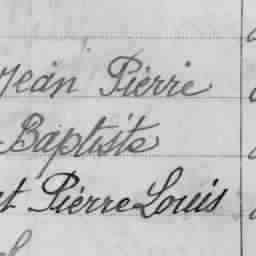 Jean Pierre
Baptiste
et Pierre Louis